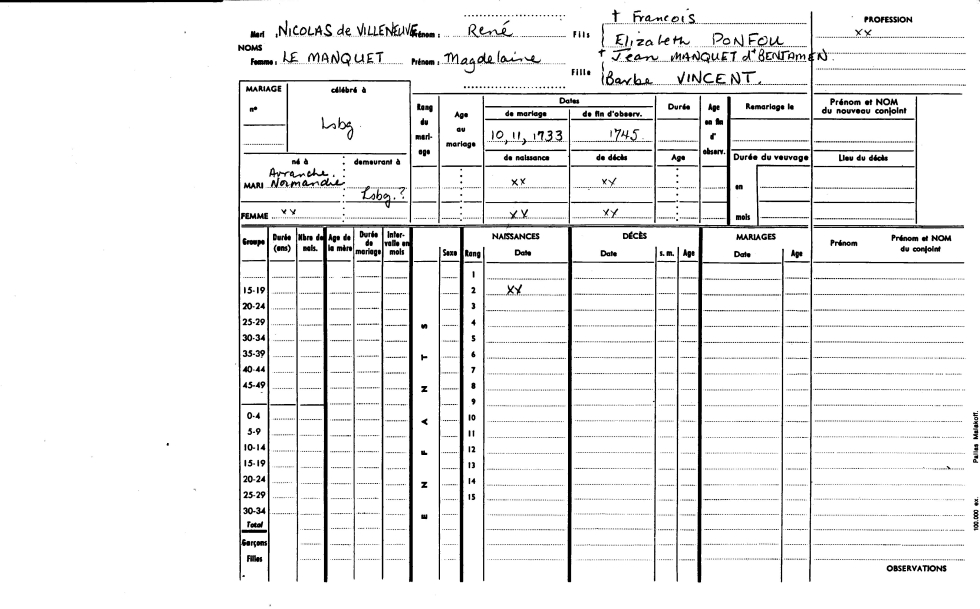 † Francois PROFESSION
Mari : NICOLAS de VILLENEUVE Prénom : René Fils Elizabeth PONFOU xx
NOMS
† Jean MANQUET d'BENTAMEN.
Femme : LE MANQUET Prénom : Magdelaine Fille
Barbe VINCENT.
MARIAGE célébré à Rang du mariage Age au mariage Dates Durée Age en fin d'observ. Remariage le Prénom et NOM du nouveau conjoint
n° de mariage de fin d'observ.
Lsbg 10, 11, 1733 1745
de naissance de décès Age Durée du veuvage Lieu du décès
né à demeurant à
Avranche.
MARI Normandie Lsbg.? xx xy en
FEMME xx xx xy mois
Groupe Durée (ans) Nbre de nais. Age de la mère Durée de mariage Inter-valle en mois Sexe Rang NAISSANCES DÉCÈS MARIAGES Prénom Prénom et NOM du conjoint
Date Date s. m. Age Date Age
1
15-19 2 xx
20-24 3
25-29 4
30-34 5
35-39 6
40-44 7
45-49 8
9
0-4 10
5-9 11
10-14 12
15-19 13
20-24 14
25-29 15
30-34
Total
Garçons
Filles
E N F A N T S
OBSERVATIONS
100.000 ex. Pallas Malakoff.